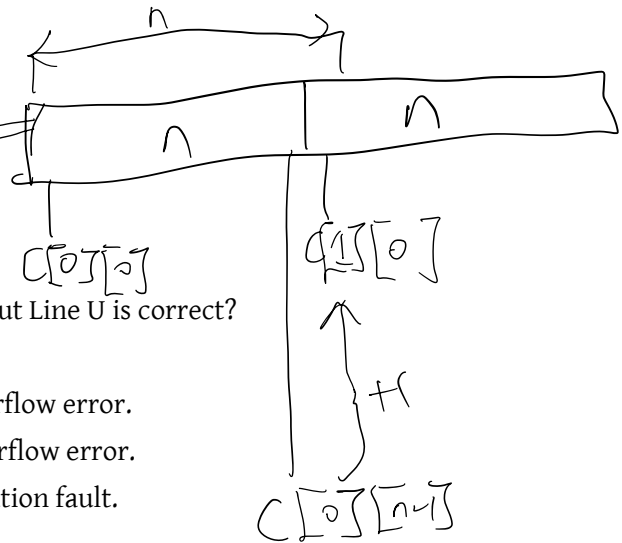 n
n n
C[0][0] C[1][0]
ut Line U is correct?
+1
rflow error.
rflow error.
tion fault.
C[0][n-1]